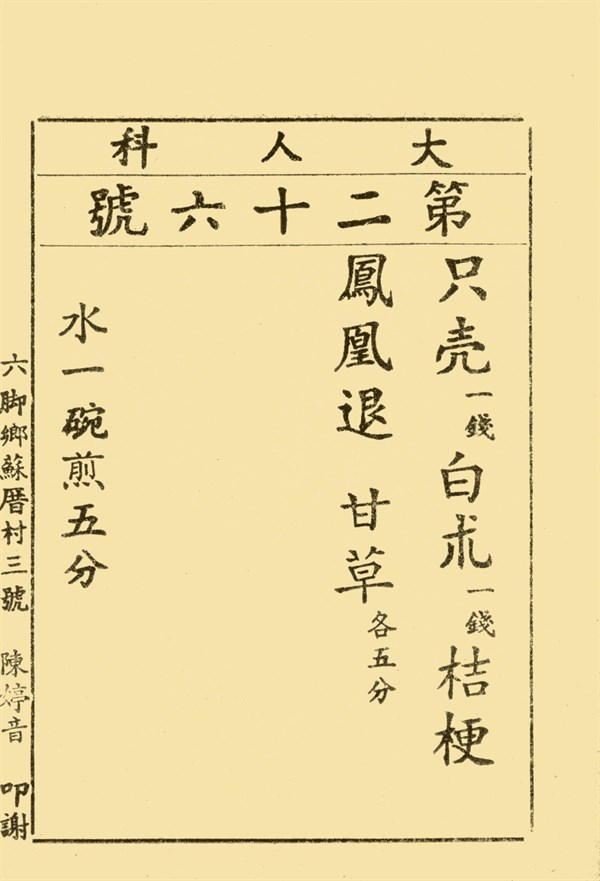 大人科
第二十六號
只壳一錢白朮一錢桔梗
鳳凰退 甘草各五分
水一碗煎五分
六脚鄉蘇厝村三號 陳婷音 叩謝